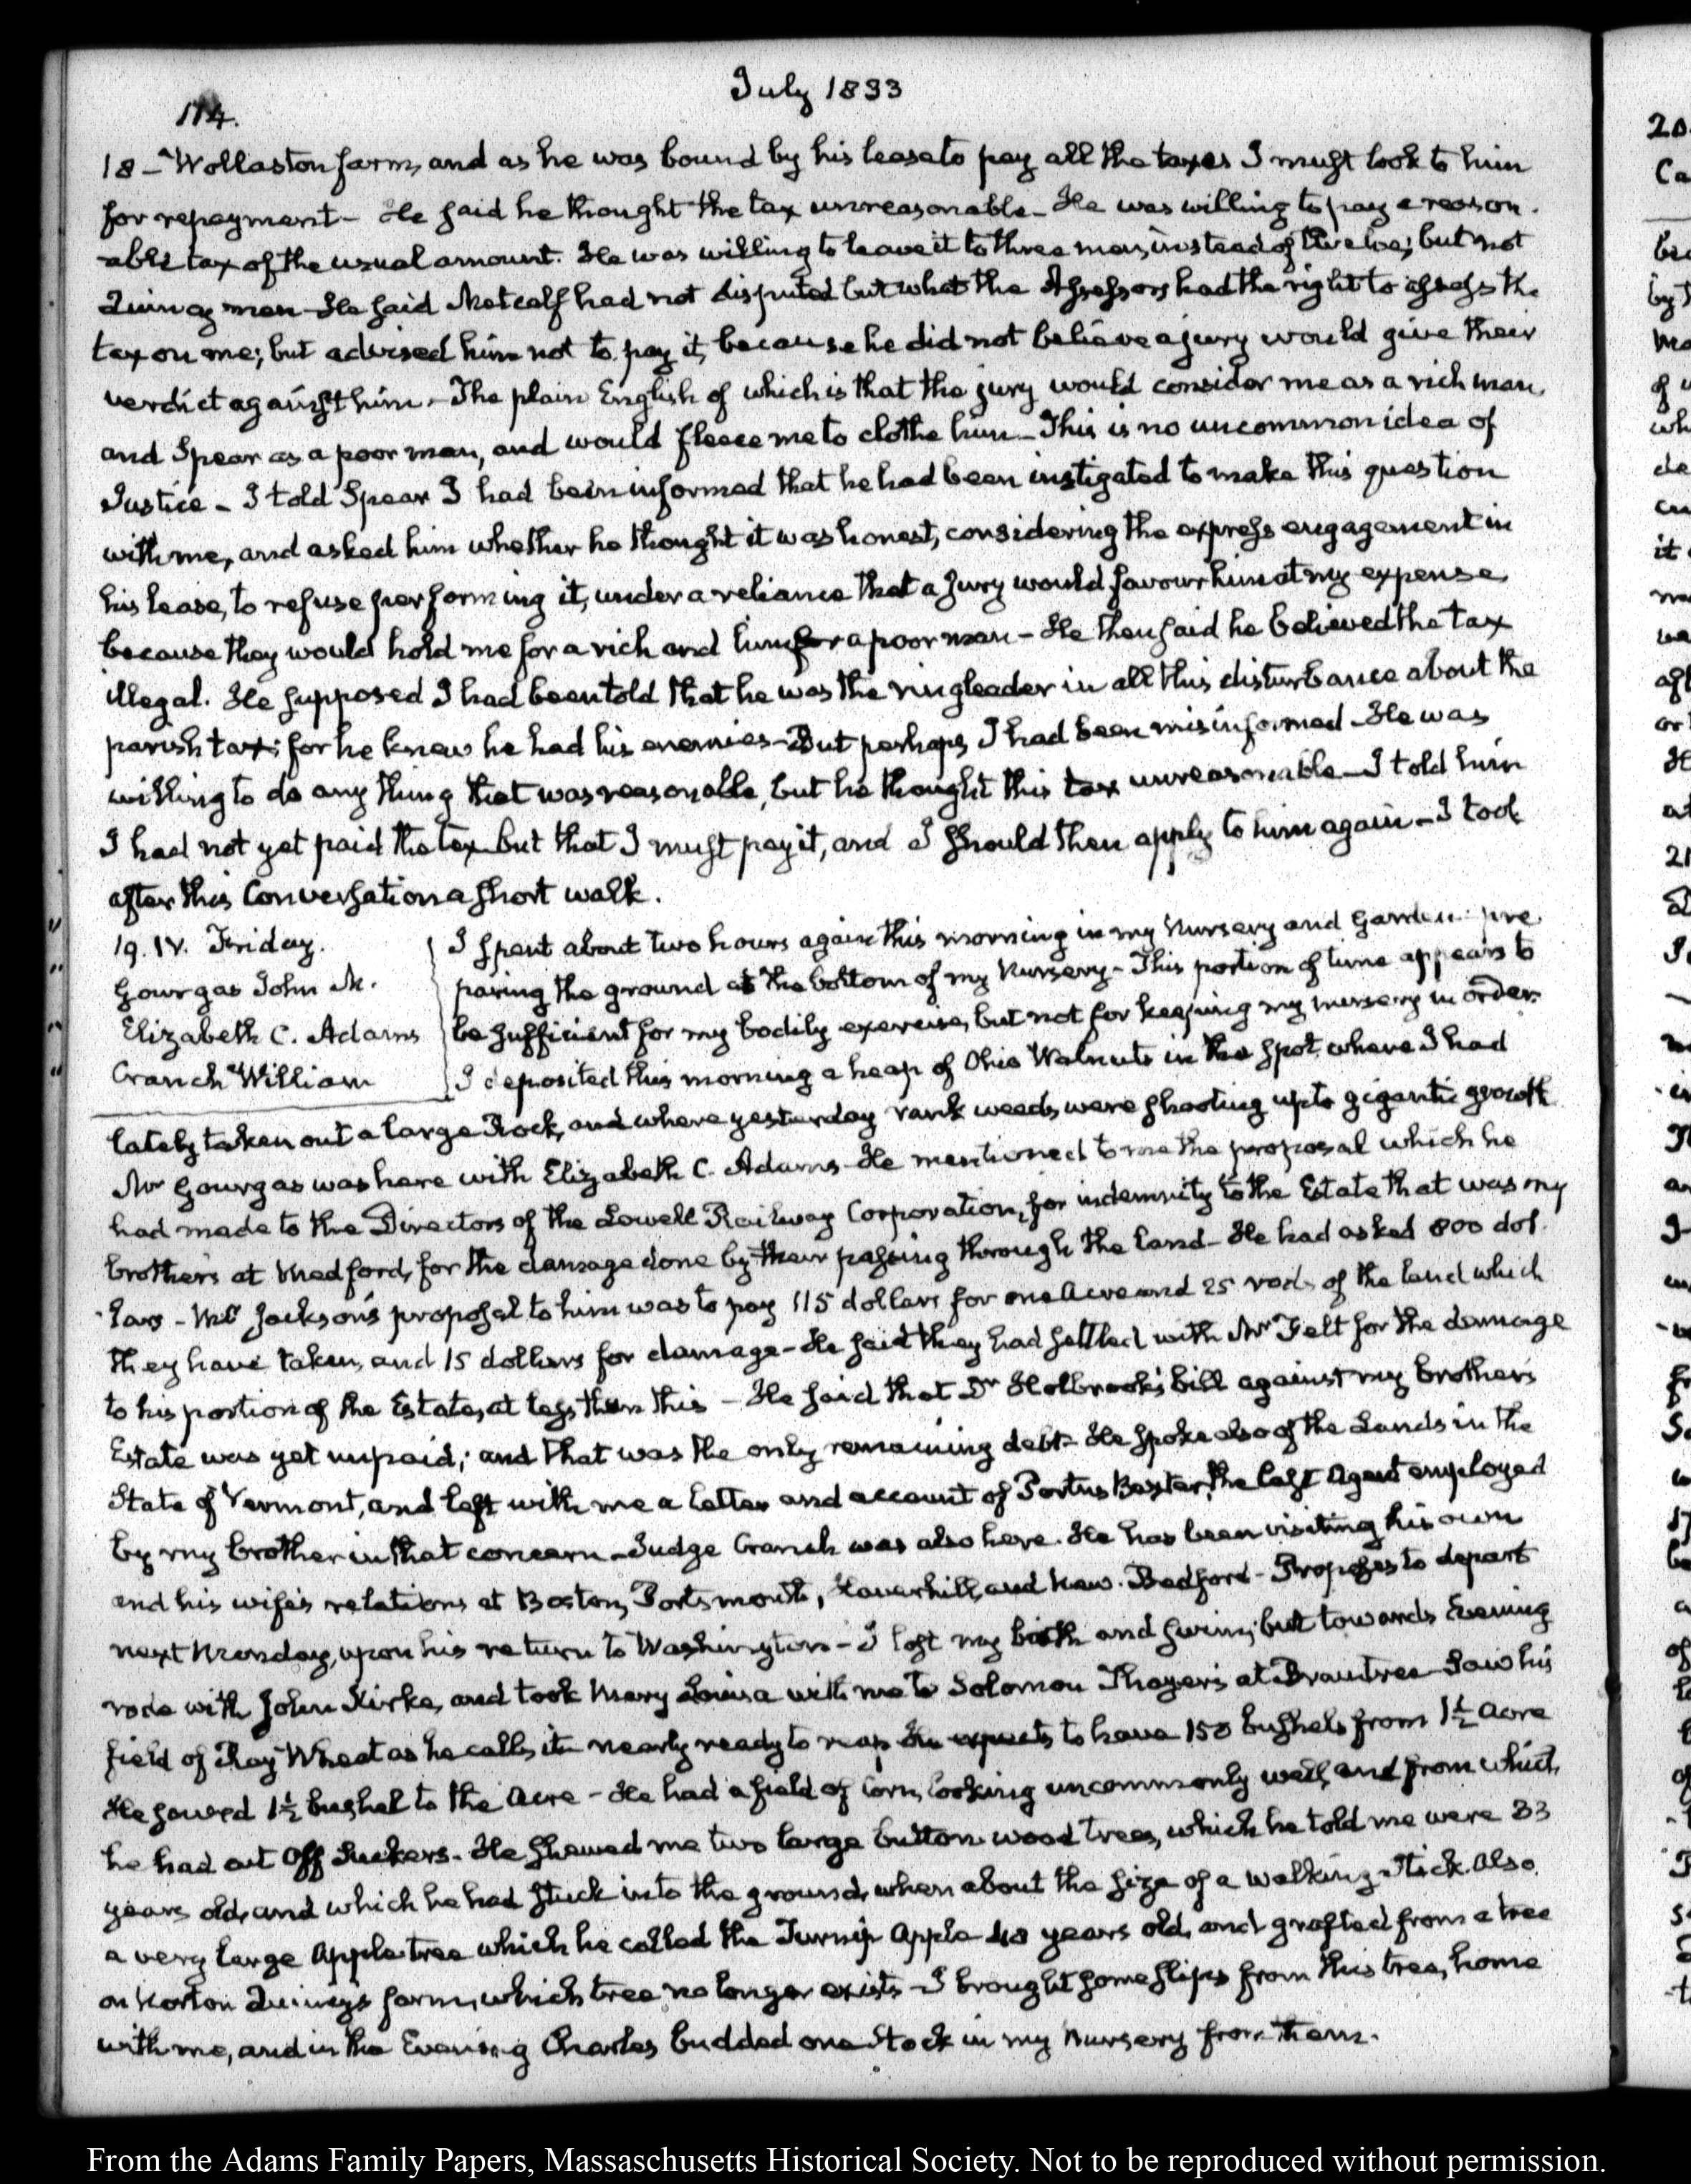 July 1833
114.
18 - Wollaston farm, and as he was bound by his lease to pay all the taxes I must look to him
for repayment - He said he thought the tax unreasonable - He was willing to pay a reason-
-able tax of the usual amount. He was willing to leave it to three men, instead of twelve; but not
Quincy men - He said Metcalf had not disputed but what the Assessors had the right to assess the
tax on me; but advised him not to pay it, because he did not believe a jury would give their
verdict against him. - The plain English of which is that the jury would consider me as a rich man,
and Spear as a poor man, and would fleece me to clothe him - This is no uncommon idea of
Justice - I told Spear I had been informed that he had been instigated to make this question
with me, and asked him whether he thought it was honest, considering the express engagement in
his lease, to refuse performing it, under a reliance that a jury would favour him at my expense,
because they would hold me for a rich and him for a poor man - He then said he believed the tax
illegal. He supposed I had been told that he was the ringleader in all this disturbance about the
parish tax; for he knew he had his enemies - But perhaps, I had been misinformed - He was
willing to do any thing that was reasonable, but he thought this tax unreasonable - I told him
I had not yet paid the tax but that I must pay it, and I should then apply to him again - I took
after this Conversation a short walk.
19. IV. Friday.
Gourgas John M.
Elizabeth C. Adams
Cranch William
I spent about two hours again this morning in my Nursery and Garden pre
paring the ground at the bottom of my Nursery - This portion of time appears to
be sufficient for my bodily exercise, but not for keeping my nursery in order.
I deposited this morning a heap of Ohio Walnuts in the spot where I had
lately taken out a large Rock, and where yesterday rank weeds, were shooting up to gigantic growth
Mr Gourgas was here with Elizabeth C. Adams - He mentioned to me the proposal which he
had made to the Directors of the Lowell Railway Corporation, for indemnity to the Estate that was my
brother's at Medford, for the damage done by their passing through the land - He had asked 800 dol-
-lars - Mr Jackson's proposal to him was to pay 115 dollars for one Acre and 25 rods of the land which
they have taken, and 15 dollars for damage - He said they had settled with Mr Felt for the damage
to his portion of the Estate, at less than this - He said that Dr Holbrook's bill against my brother's
Estate was yet unpaid; and that was the only remaining debt - He spoke also of the Lands in the
State of Vermont, and left with me a letter and account of Portus Baxter, the last Agent employed
by my brother in that concern - Judge Cranch was also here. He has been visiting his own
and his wife's relations at Boston, Portsmouth, Haverhill, and New-Bedford - Proposes to depart
next Monday, upon his return to Washington - I lost my bath and swim; but towards Evening
rode with John Kirke, and took Mary Louisa with me to Solomon Thayer's at Braintree - Saw his
field of Ray Wheat as he calls it - nearly ready to reap He expects to have 150 bushels from 1½ Acre
He sowed 1½ bushel to the Acre - He had a field of Corn, looking uncommonly well, and from which
he had cut off Suckers - He shewed me two large button-wood trees, which he told me were 33
years old, and which he had stuck into the ground, when about the size of a walking-stick. Also
a very large Apple-tree which he called the Turnip Apple 40 years old, and grafted from a tree
on Norton Quincy's farm, which tree no longer exists - I brought some slips from this tree, home
with me, and in the Evening Charles budded one Stock in my Nursery from them.
From the Adams Family Papers, Massaschusetts Historical Society. Not to be reproduced without permission.